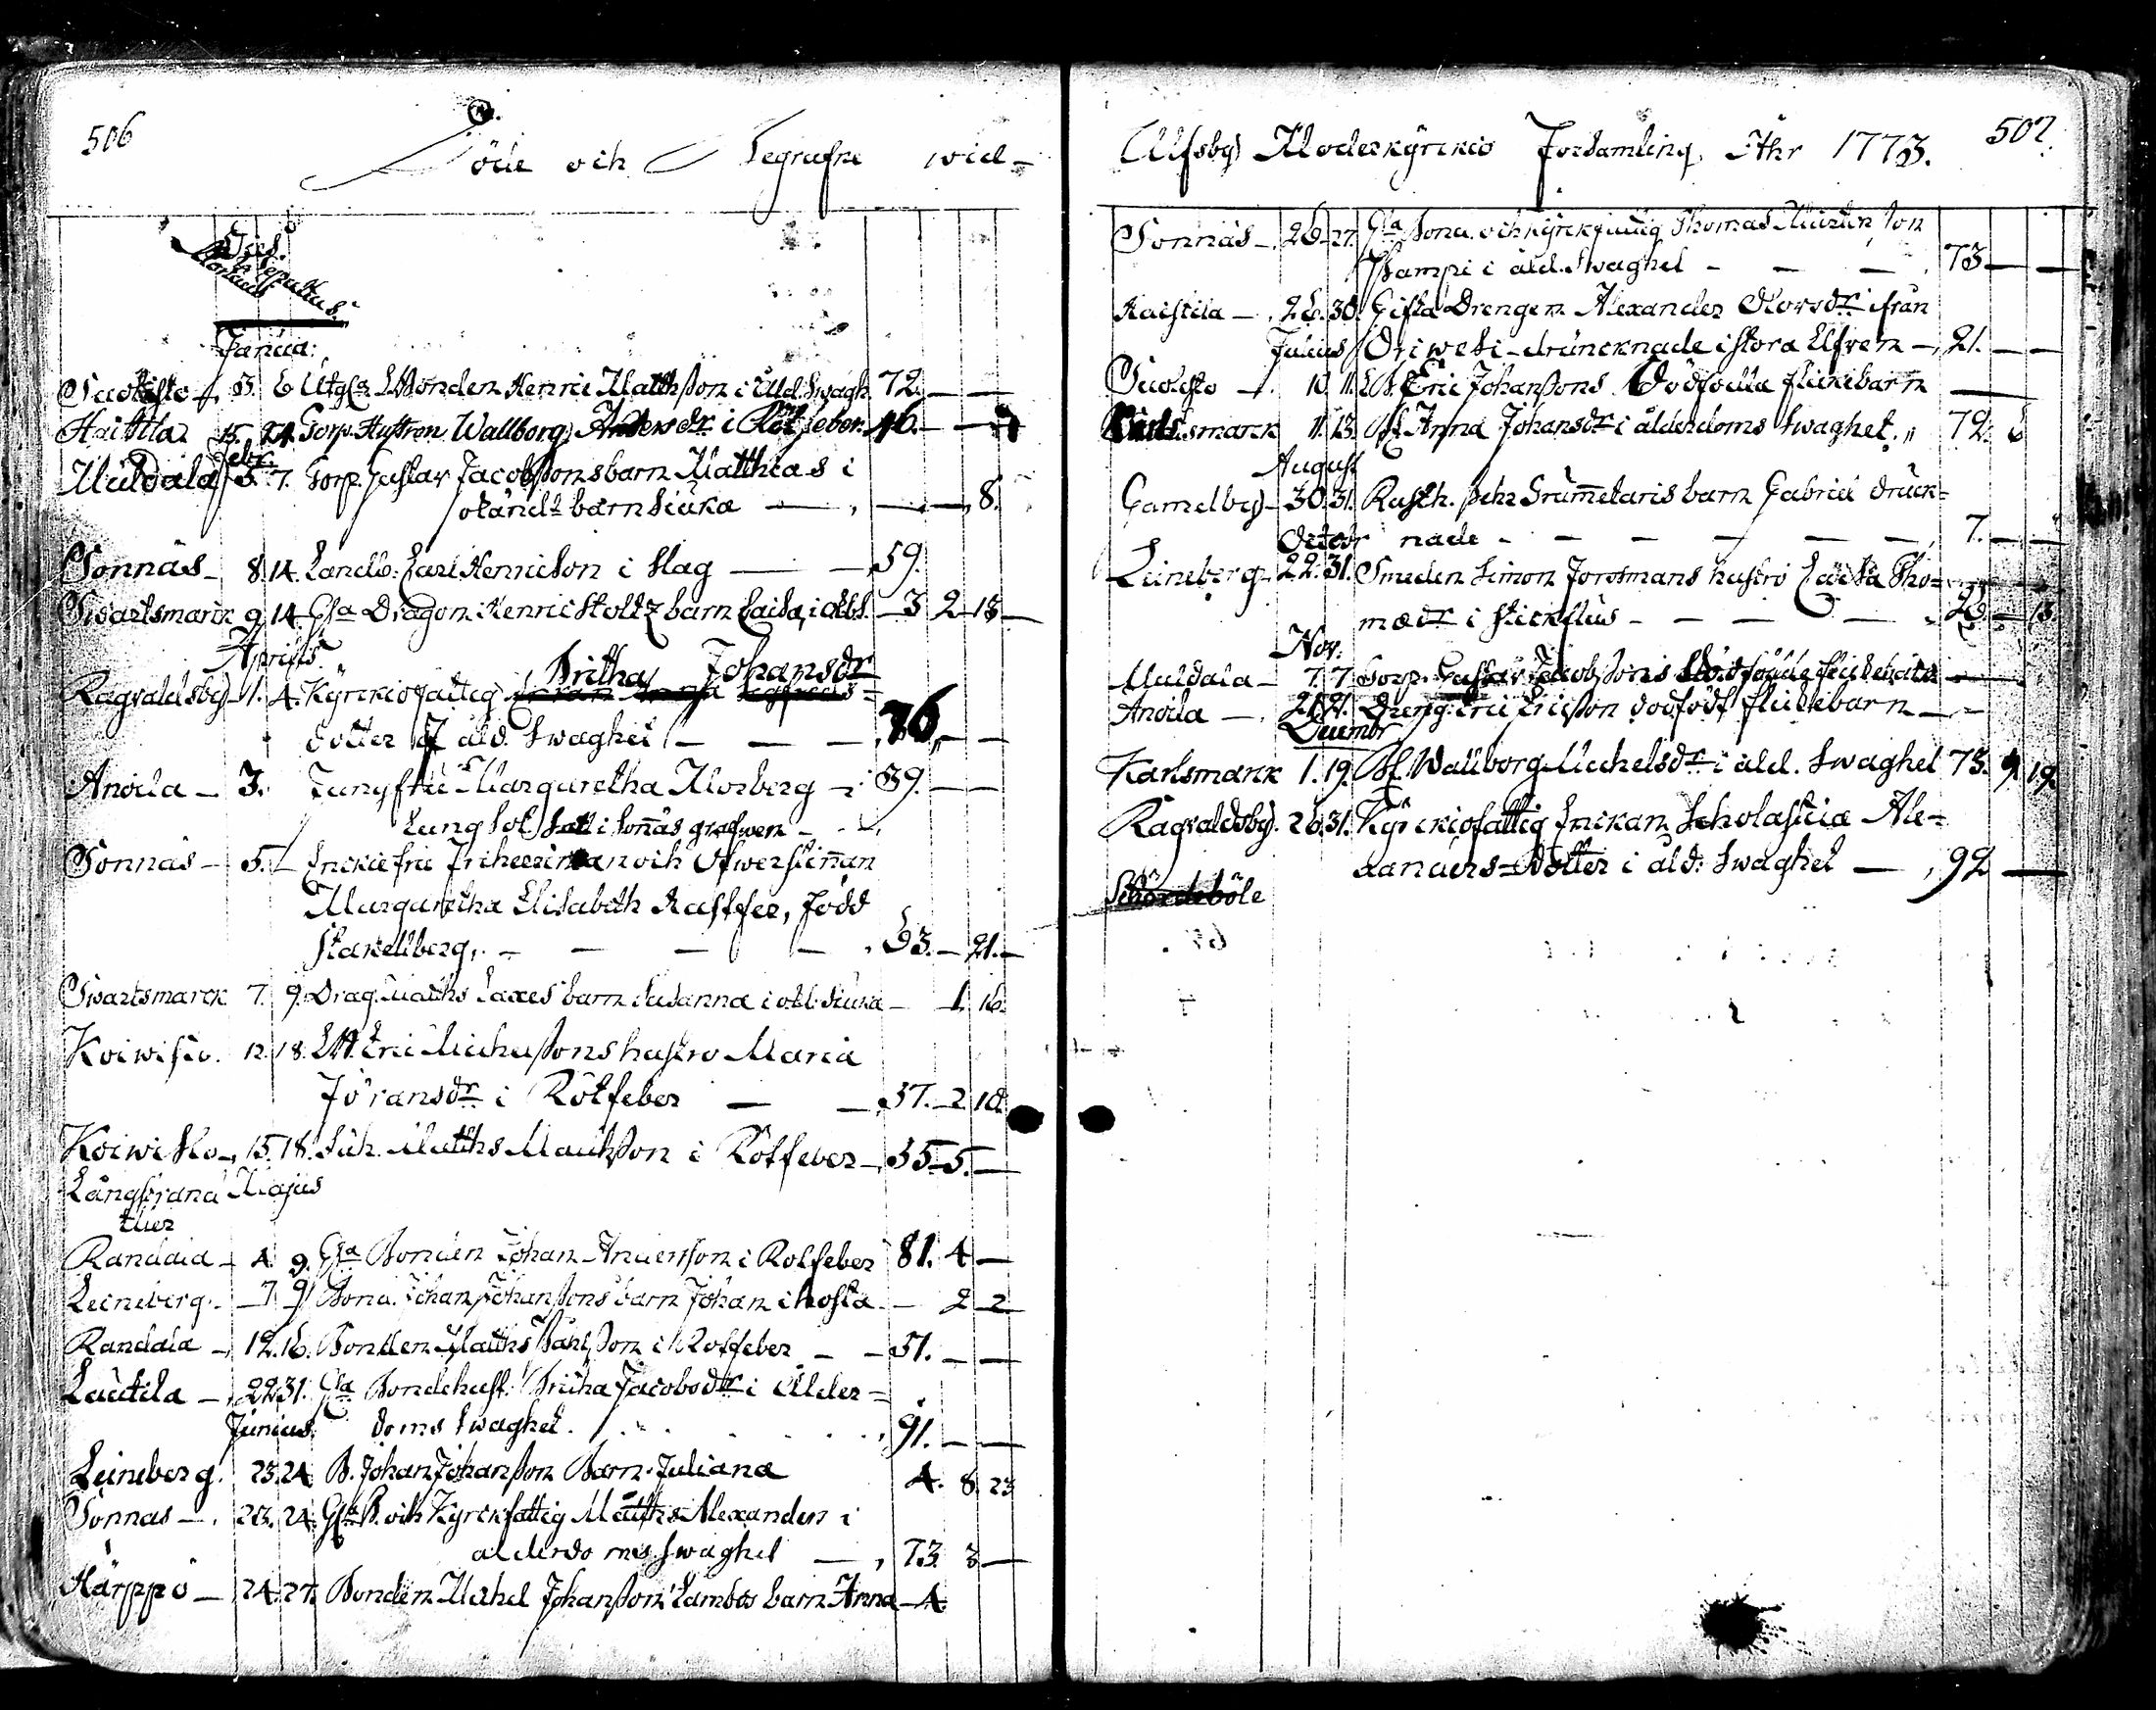 506
Döde och Begrafne wid
Janua:
Suoliste 3. 6 Utgla Bonden Henric Matthsson i Åld. Swagh. 72. — —
Haistila 15. 24. Sorp. Hustrun Wallborg Andersdr i Rötfeber. 46. —
Febr.
Muldala 5. 7. Sorp. Gustav Jacobssons barn Matthias i
okänd barn siuka — — — 8.
Sonnäs 8. 14. Landb. Carl Henricson i slag — 59.
Swartsmark 9. 14. Gla Dragon Henric Stoltz barn Caisa i obl. — 3 2 13
Aprilis
Britha Johansdr
Ragvaldsby 1. 4. Kyrckiofattig
dotter af åld. Swaghet — — — 76. — —
Anoila — 3. Jungfru Margaretha Morberg — 39. — —
Lungsot i Sonnäs grafwen —
Sonnäs — 5. Enckiefru Friherrinnan och Öfwerstinnan
Margaretha Elisabeth Rastfer, född
Stakelberg, — — — 53. — 21. —
Swartsmarck 7. 9. Drag. Matths Laxes barn Susanna i obl. siuka — 1. 16.
Koiwisto. 12. 18. Eric Michelssons hustro Maria
Jöransdr i Rötfeber — — 37. 2 10.
Koiwisto — 15. 18. Matths Mattsson i Rötfeber — 35 5. —
Långfrana Majus
Randala — 4. 9. Gla Bonden Johan Andersson i Rötfeber 81. 4 —
Leineberg. — 7 9 Bond. Johan Johanssons barn Johan i hosta — 2 2
Randala — 12. 16. Bonden Matths Pärsson i Rötfeber — — 51. — —
Lautila — 22. 31. Gla Bondehust. Britha Jacobsdr i Ålder=
Junius. doms swaghet. 91. — —
Leineberg. 23. 24 B. Johan Johansson Barn Juliana 4. 8. 23
Sonnas — 23. 24. Gla B. och Kyrckfattig Matths Alexander i
alderdoms Swaghet — 73. 3 —
Härppö — 24. 27. Bonden Michel Johansson Lambos barn Anna — 4.
Ulfsby Moderkyrckio Församling Åhr 1773. 507.
Sonnäs — 26. 27. Gla Bond. och kyrckfattig Thomas Mårtensson
Kampi i åld. Swaghet — — — 73 — —
Haistila — 26. 30. Gifta Drengen Alexander Olovsdr ifrån
Julius Oriwesi — drunknade i stora Elfven — 21. — —
Suolisto — 10. 11. Eric Johanssons Dödfödda flickebarn —
Swartsmarck 11. 13. Anna Johansdr i ålderdoms swaghet. 72. 6
August
Gamelby — 30. 31. Rusth. Pehr Grummetaris barn Gabriel druck=
Octobr nade — — — — — — 7. — —
Leineberg 22. 31. Smeden Simon Forssmans hustro Caisa Tho=
mædr i stickflus — — — — 28. — 13
Nov:
Muldala — 7. 7. Sorp. Gustav Jacobssons dödfödde flickebarn
Anoila — 21. 21. Dreng Eric Ericsson dödfödt flickebarn — —
Decembr
Karlsmarck 1. 19. Wallborg Michelsdr i åld. Swaghet 73. 9. 19.
Ragvaldsby. 26. 31. Kyrckiofattig Enckan Scholastica Ale=
xanders=dotter i åld: Swaghet — 92 —
Södeböle